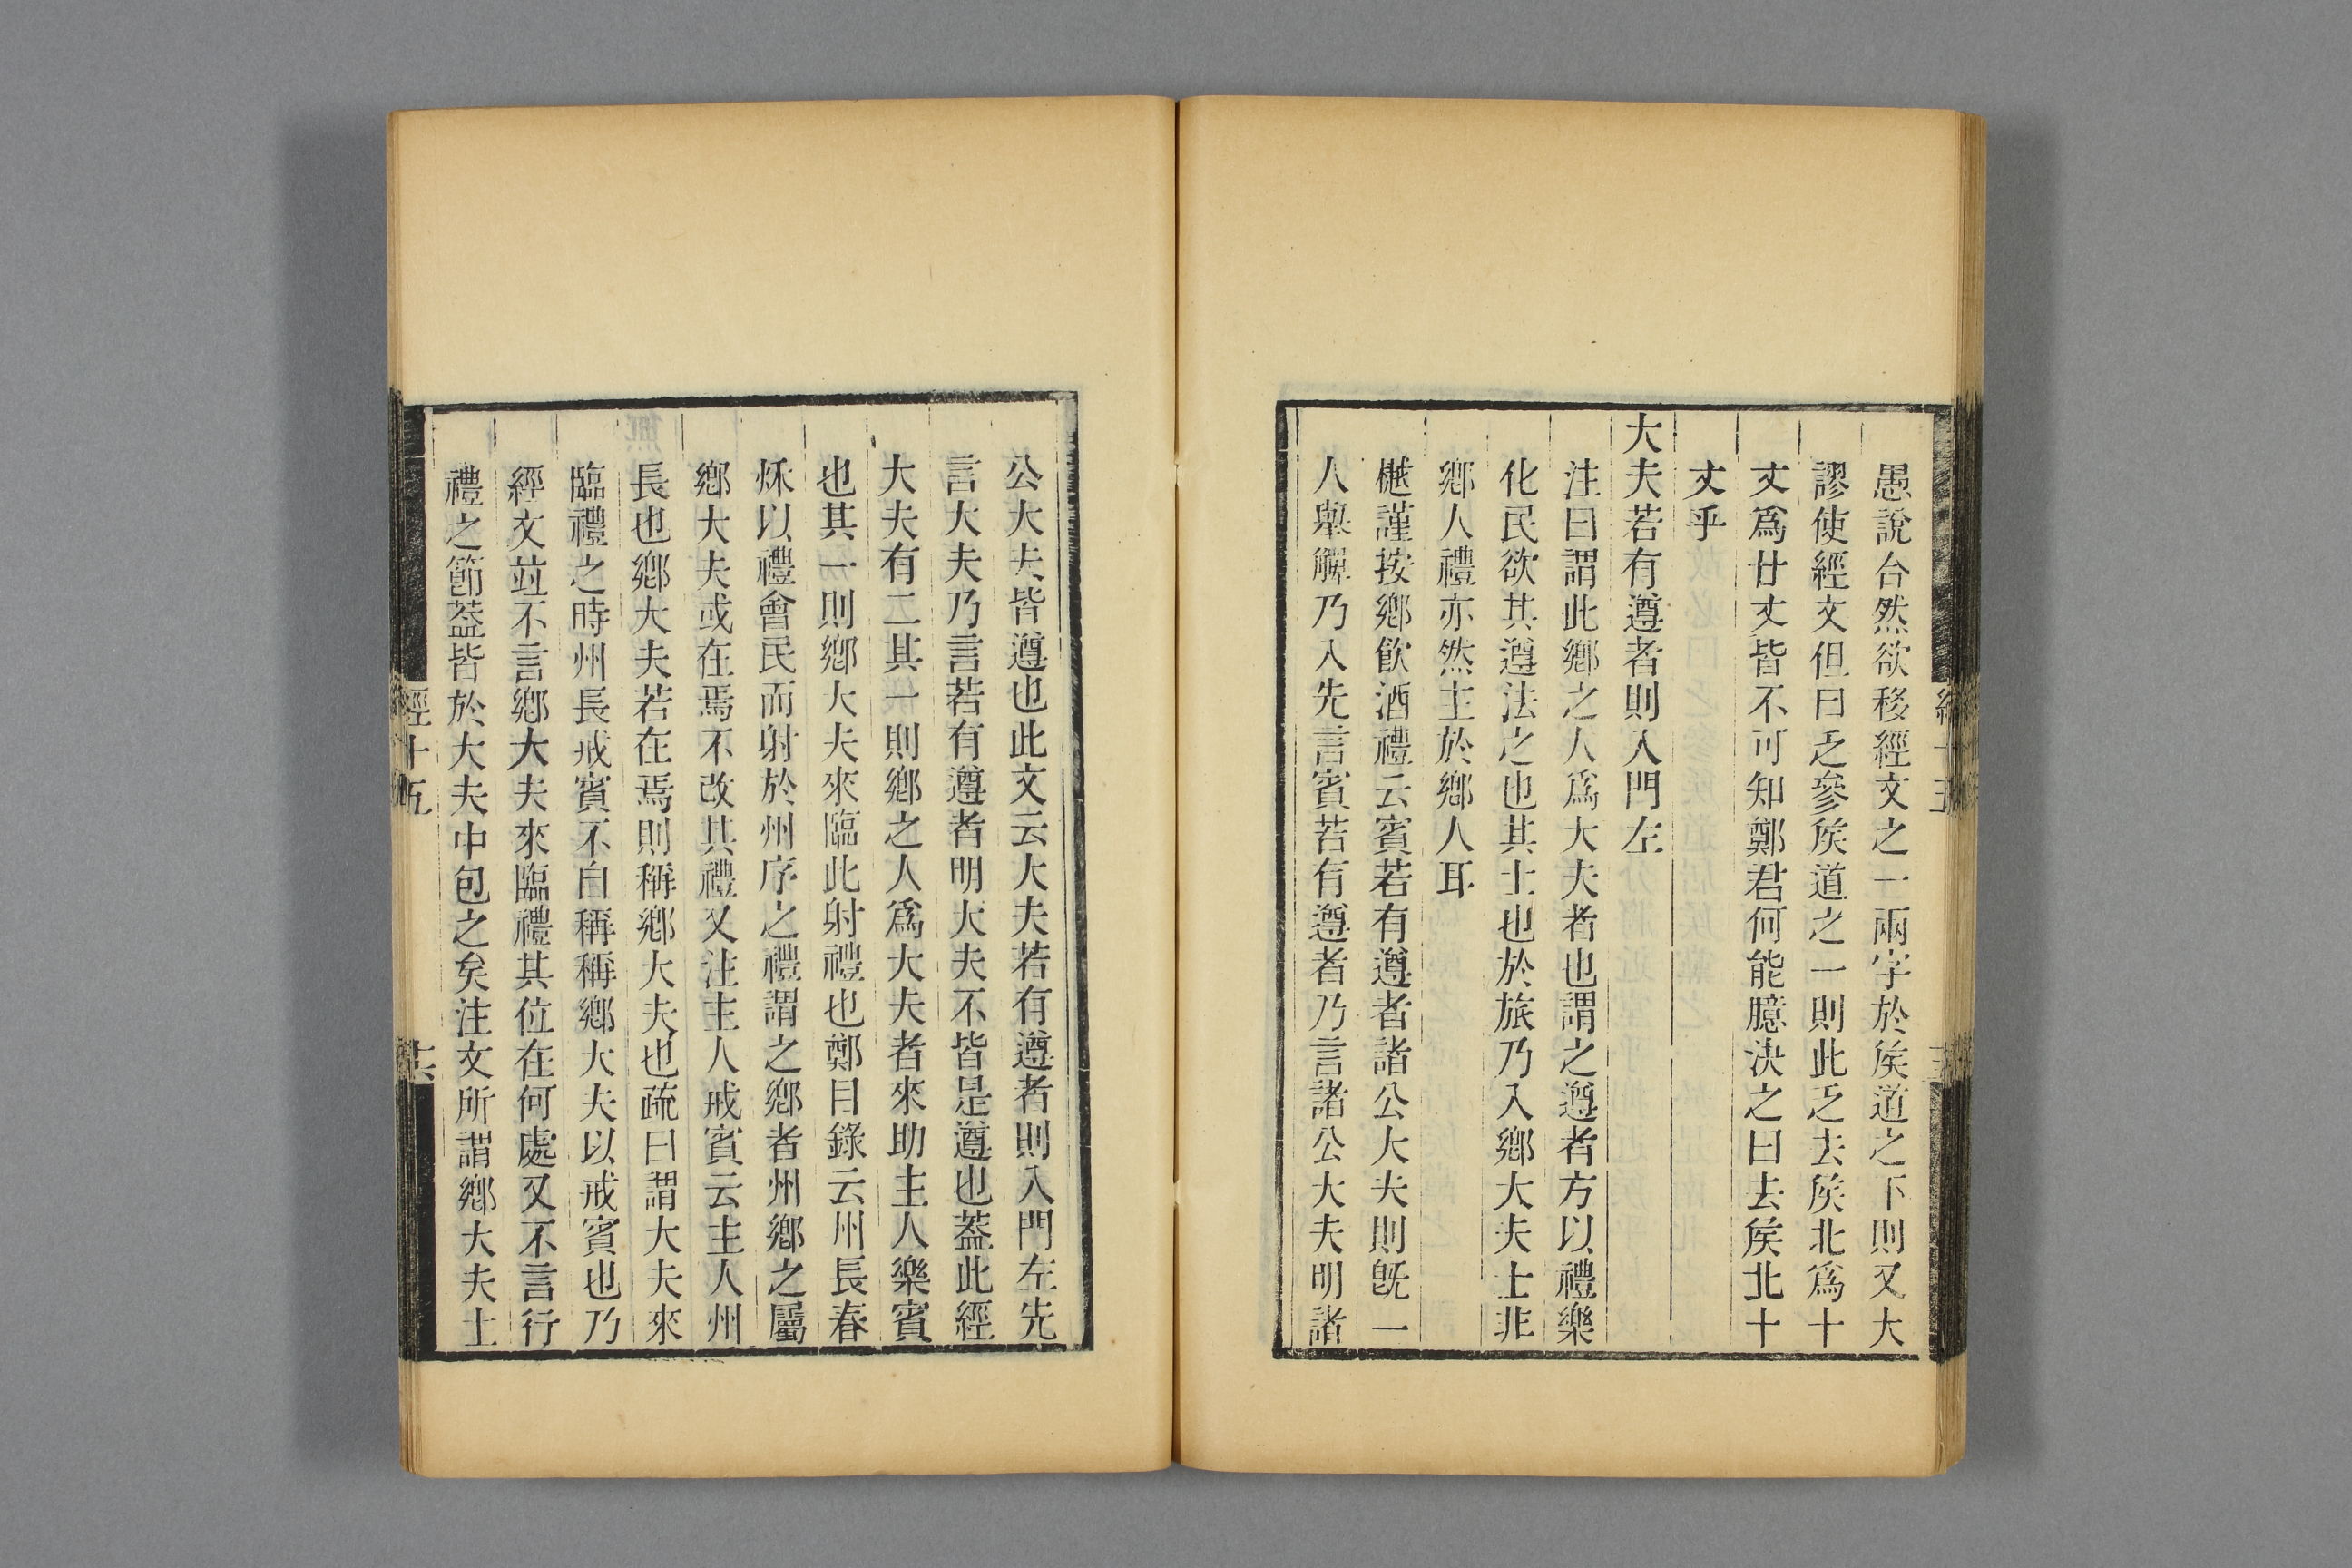 愚說合然欲移經文之一兩字於矦道之下則又大
謬使經文但曰乏參矦道之一則此乏去矦北爲十
丈爲廿丈皆不可知鄭君何能臆決之曰去矦北十
丈乎
大夫若有遵者則入門左
注曰謂此鄉之人爲大夫者也謂之遵者方以禮樂
化民欲其遵法之也其士也於旅乃入鄉大夫士非
鄉人禮亦然主於鄉人耳
樾謹按鄉飮酒禮云賓若有遵者諸公大夫則旣一
人舉觶乃入先言賓若有遵者乃言諸公大夫明諸
公大夫皆遵也此文云大夫若有遵者則入門左先
言大夫乃言若有遵者明大夫不皆是遵也葢此經
大夫有二其一則鄉之人爲大夫者來助主人樂賓
也其一則鄉大夫來臨此射禮也鄭目錄云州長春
秋以禮會民而射於州序之禮謂之鄉者州鄉之屬
鄉大夫或在焉不改其禮又注主人戒賓云主人州
長也鄉大夫若在焉則稱鄉大夫也疏曰謂大夫來
臨禮之時州長戒賓不自稱稱鄉大夫以戒賓也乃
經文竝不言鄉大夫來臨禮其位在何處又不言行
禮之節葢皆於大夫中包之矣注文所謂鄉大夫士
經十五
十六